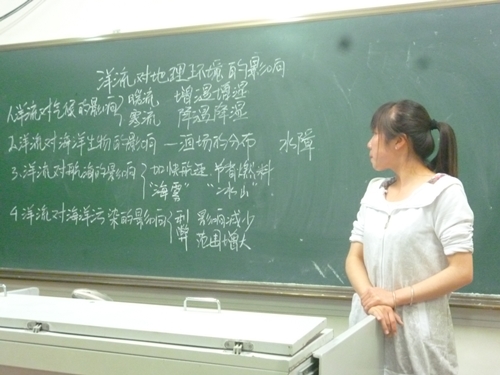 洋流对地理环境的影响
1.洋流对气候的影响 暖流 增温增湿
寒流 降温降湿
2.洋流对海洋生物的影响—渔场的分布 水障
3.洋流对航海的影响 加快航速 节省燃料
"海雾" "冰山"
4.洋流对海洋污染的影响 利 影响减少
弊 范围增大